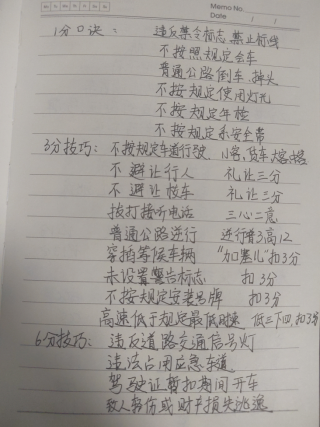 Memo No.
Date / /
1分口诀： 违反禁令标志 禁止标线
不按照规定会车
普通公路倒车、掉头
不按规定使用灯光
不按规定年检
不按规定系安全带
3分技巧： 不按规定车道行驶 小客、货车
不避让行人 礼让三分
不避让校车 礼让三分
拨打接听电话 三心二意
普通公路逆行 逆行普3高12
穿插等候车辆 "加塞儿"扣3分
未设置警告标志 扣3分
不按规定安装号牌 扣3分
高速低于规定最低时速 低三下四，扣3分
6分技巧： 违反道路交通信号灯
违法占用应急车道
驾驶证暂扣期间开车
致人轻伤或财产损失逃逸